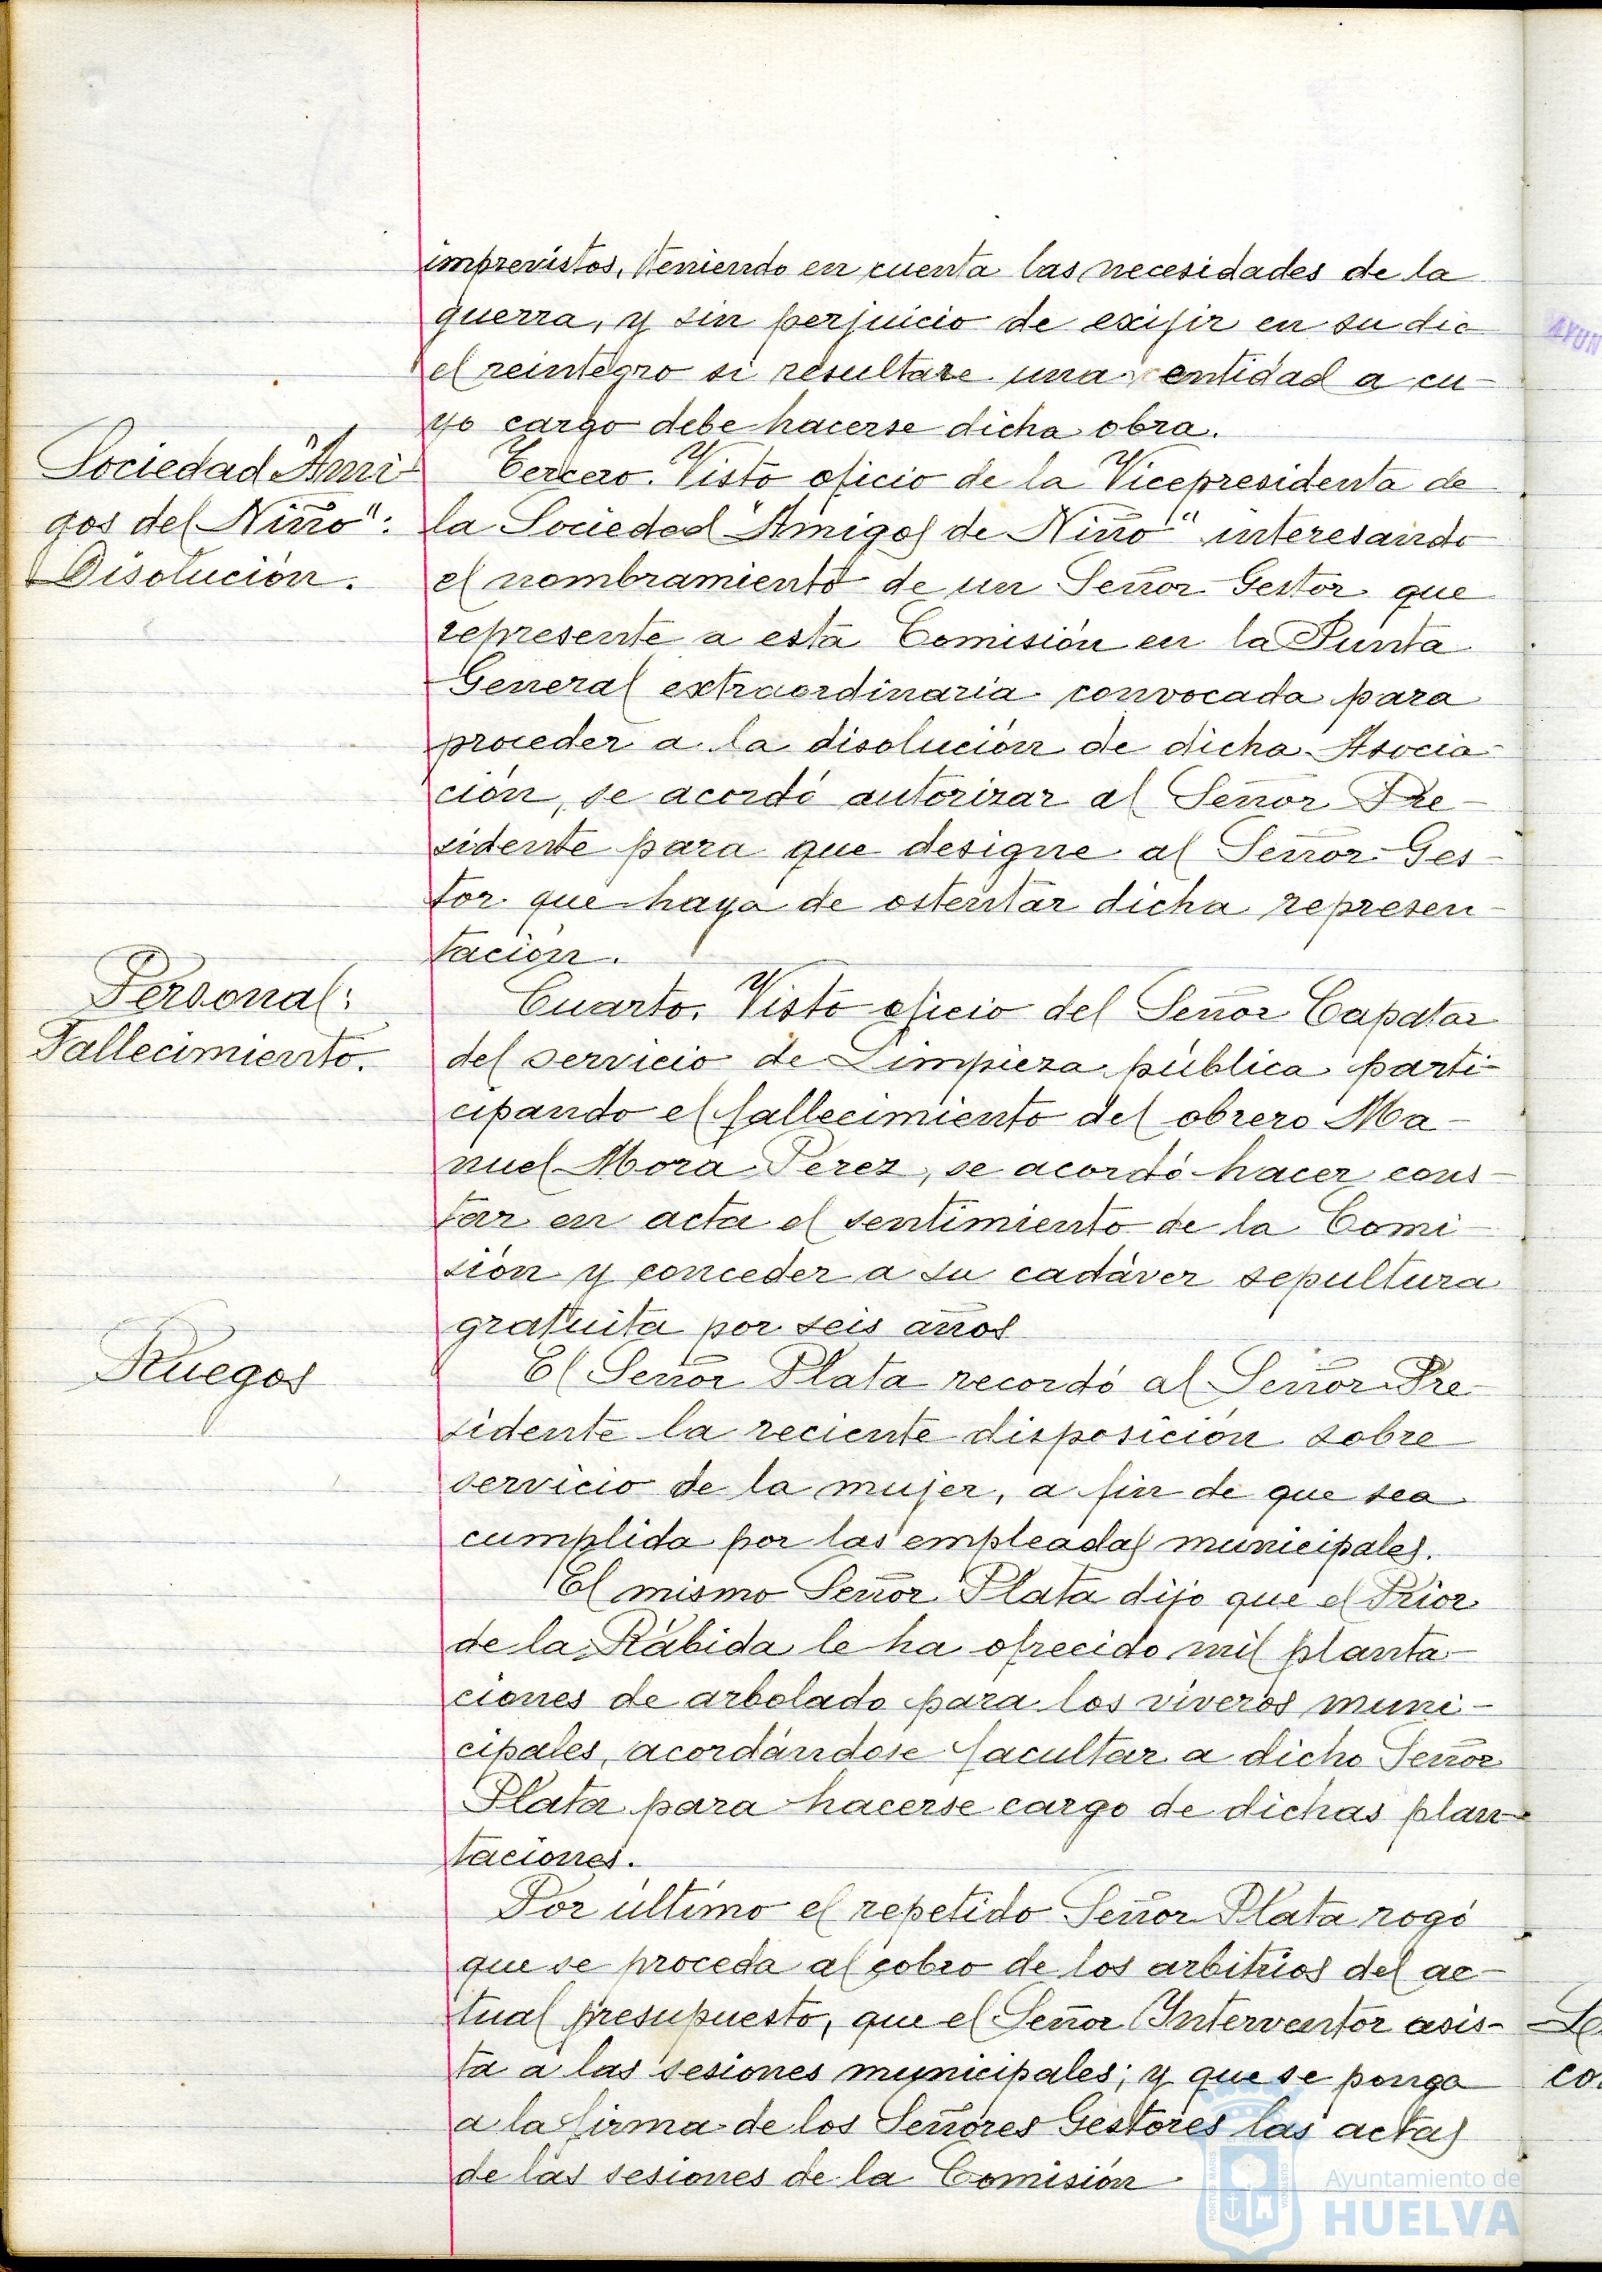 imprevistos, teniendo en cuenta las necesidades de la
guerra, y sin perjuicio de exijir en su dia
el reintegro si resultare una entidad a cu-
yo cargo debe hacerse dicha obra.
Sociedad "Ami-
gos del Niño":
Disolución.
Tercero. Visto oficio de la Vicepresidenta de
la Sociedad "Amigos de Niño" interesando
el nombramiento de un Señor Gestor que
represente a esta Comisión en la Junta
General extraordinaria convocada para
proceder a la disolución de dicha Asocia-
ción, se acordó autorizar al Señor Pre-
sidente para que designe al Señor Ges-
tor que haya de ostentar dicha represen-
tación.
Personal:
Fallecimiento.
Cuarto. Visto oficio del Señor Capataz
del servicio de Limpieza pública parti-
cipando el fallecimiento del obrero Ma-
nuel Mora Perez, se acordó hacer cons-
tar en acta el sentimiento de la Comi-
sión y conceder a su cadáver sepultura
gratuita por seis años
Ruegos
El Señor Plata recordó al Señor Pre-
sidente la reciente disposición sobre
servicio de la mujer, a fin de que sea
cumplida por las empleadas municipales.
El mismo Señor Plata dijo que el Prior
de la Rábida le ha ofrecido mil planta-
ciones de arbolado para los viveros muni-
cipales, acordándose facultar a dicho Señor
Plata para hacerse cargo de dichas plan-
taciones.
Por último el repetido Señor Plata rogó
que se proceda al cobro de los arbitrios del ac-
tual presupuesto, que el Señor Interventor asis-
ta a las sesiones municipales; y que se ponga
a la firma de los Señores Gestores las actas
de las sesiones de la Comisión
Ayuntamiento de
HUELVA